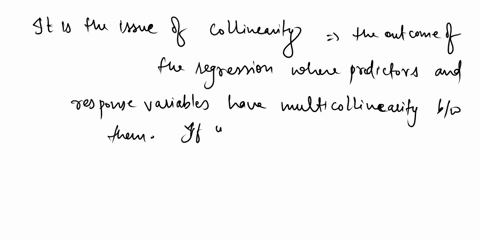 It is the issue of collinearity => the outcome of
the regression where predictors and
response variables have multicollinearity b/w
them. If